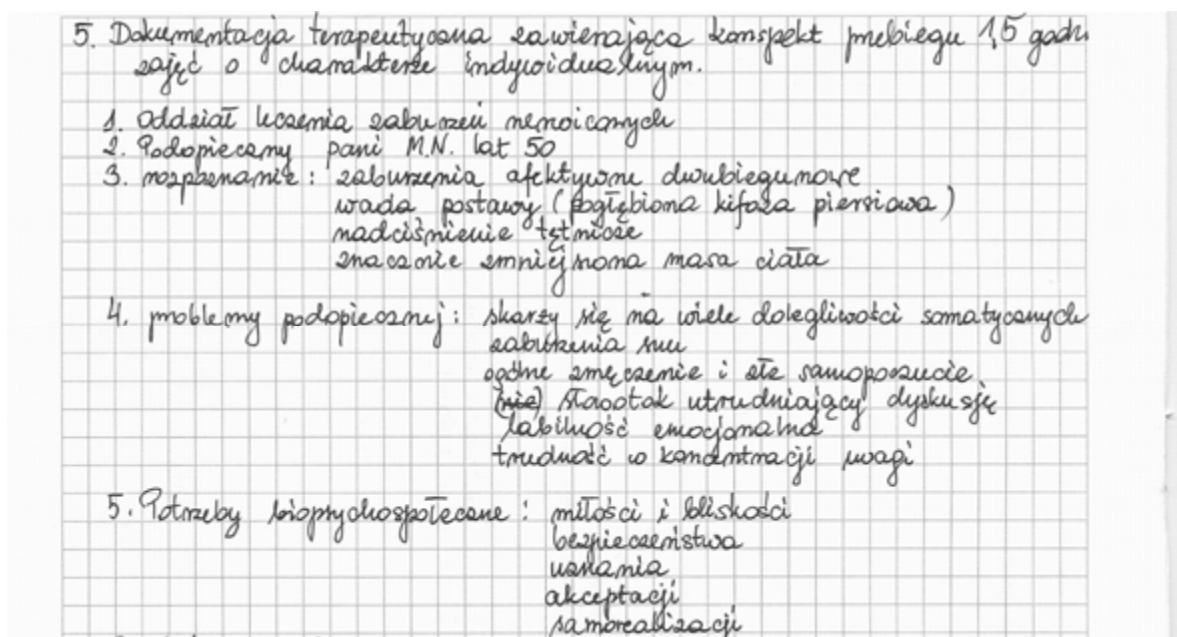 5. Dokumentacja terapeutyczna zawierająca konspekt przebiegu 1,5 godz.
zajęć o charakterze indywidualnym.
1. Oddział leczenia zaburzeń nerwicowych
2. Podopieczny pani M.N. lat 50
3. rozpoznanie: zaburzenia afektywne dwubiegunowe
wada postawy (pogłębiona kifoza piersiowa)
nadciśnienie tętnicze
znacznie zmniejszona masa ciała
4. problemy podopiecznej: skarży się na wiele dolegliwości somatycznych
zaburzenia snu
ogólne zmęczenie i złe samopoczucie
(nie) słowotok utrudniający dyskusję
labilność emocjonalna
trudność w koncentracji uwagi
5. Potrzeby biopsychospołeczne: miłości i bliskości
bezpieczeństwa
uznania
akceptacji
samorealizacji